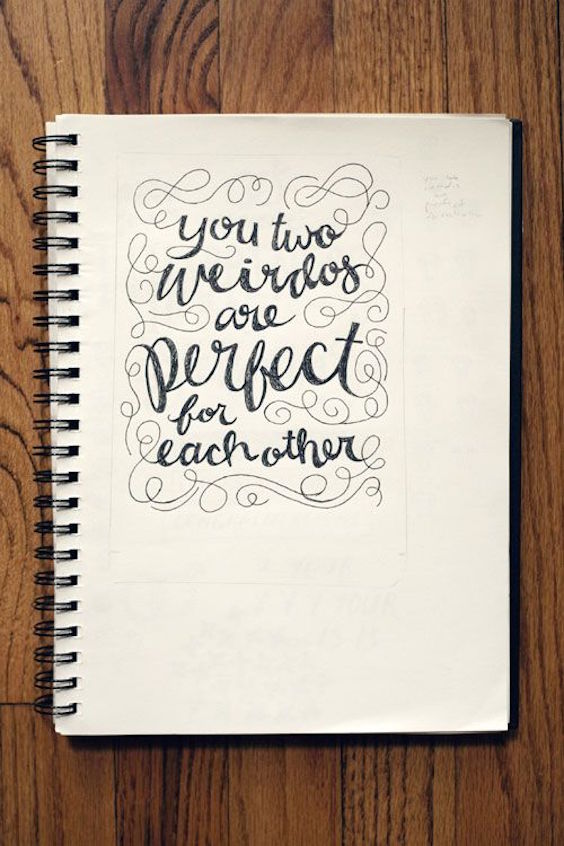 you two
weirdos
are
perfect
for
each other